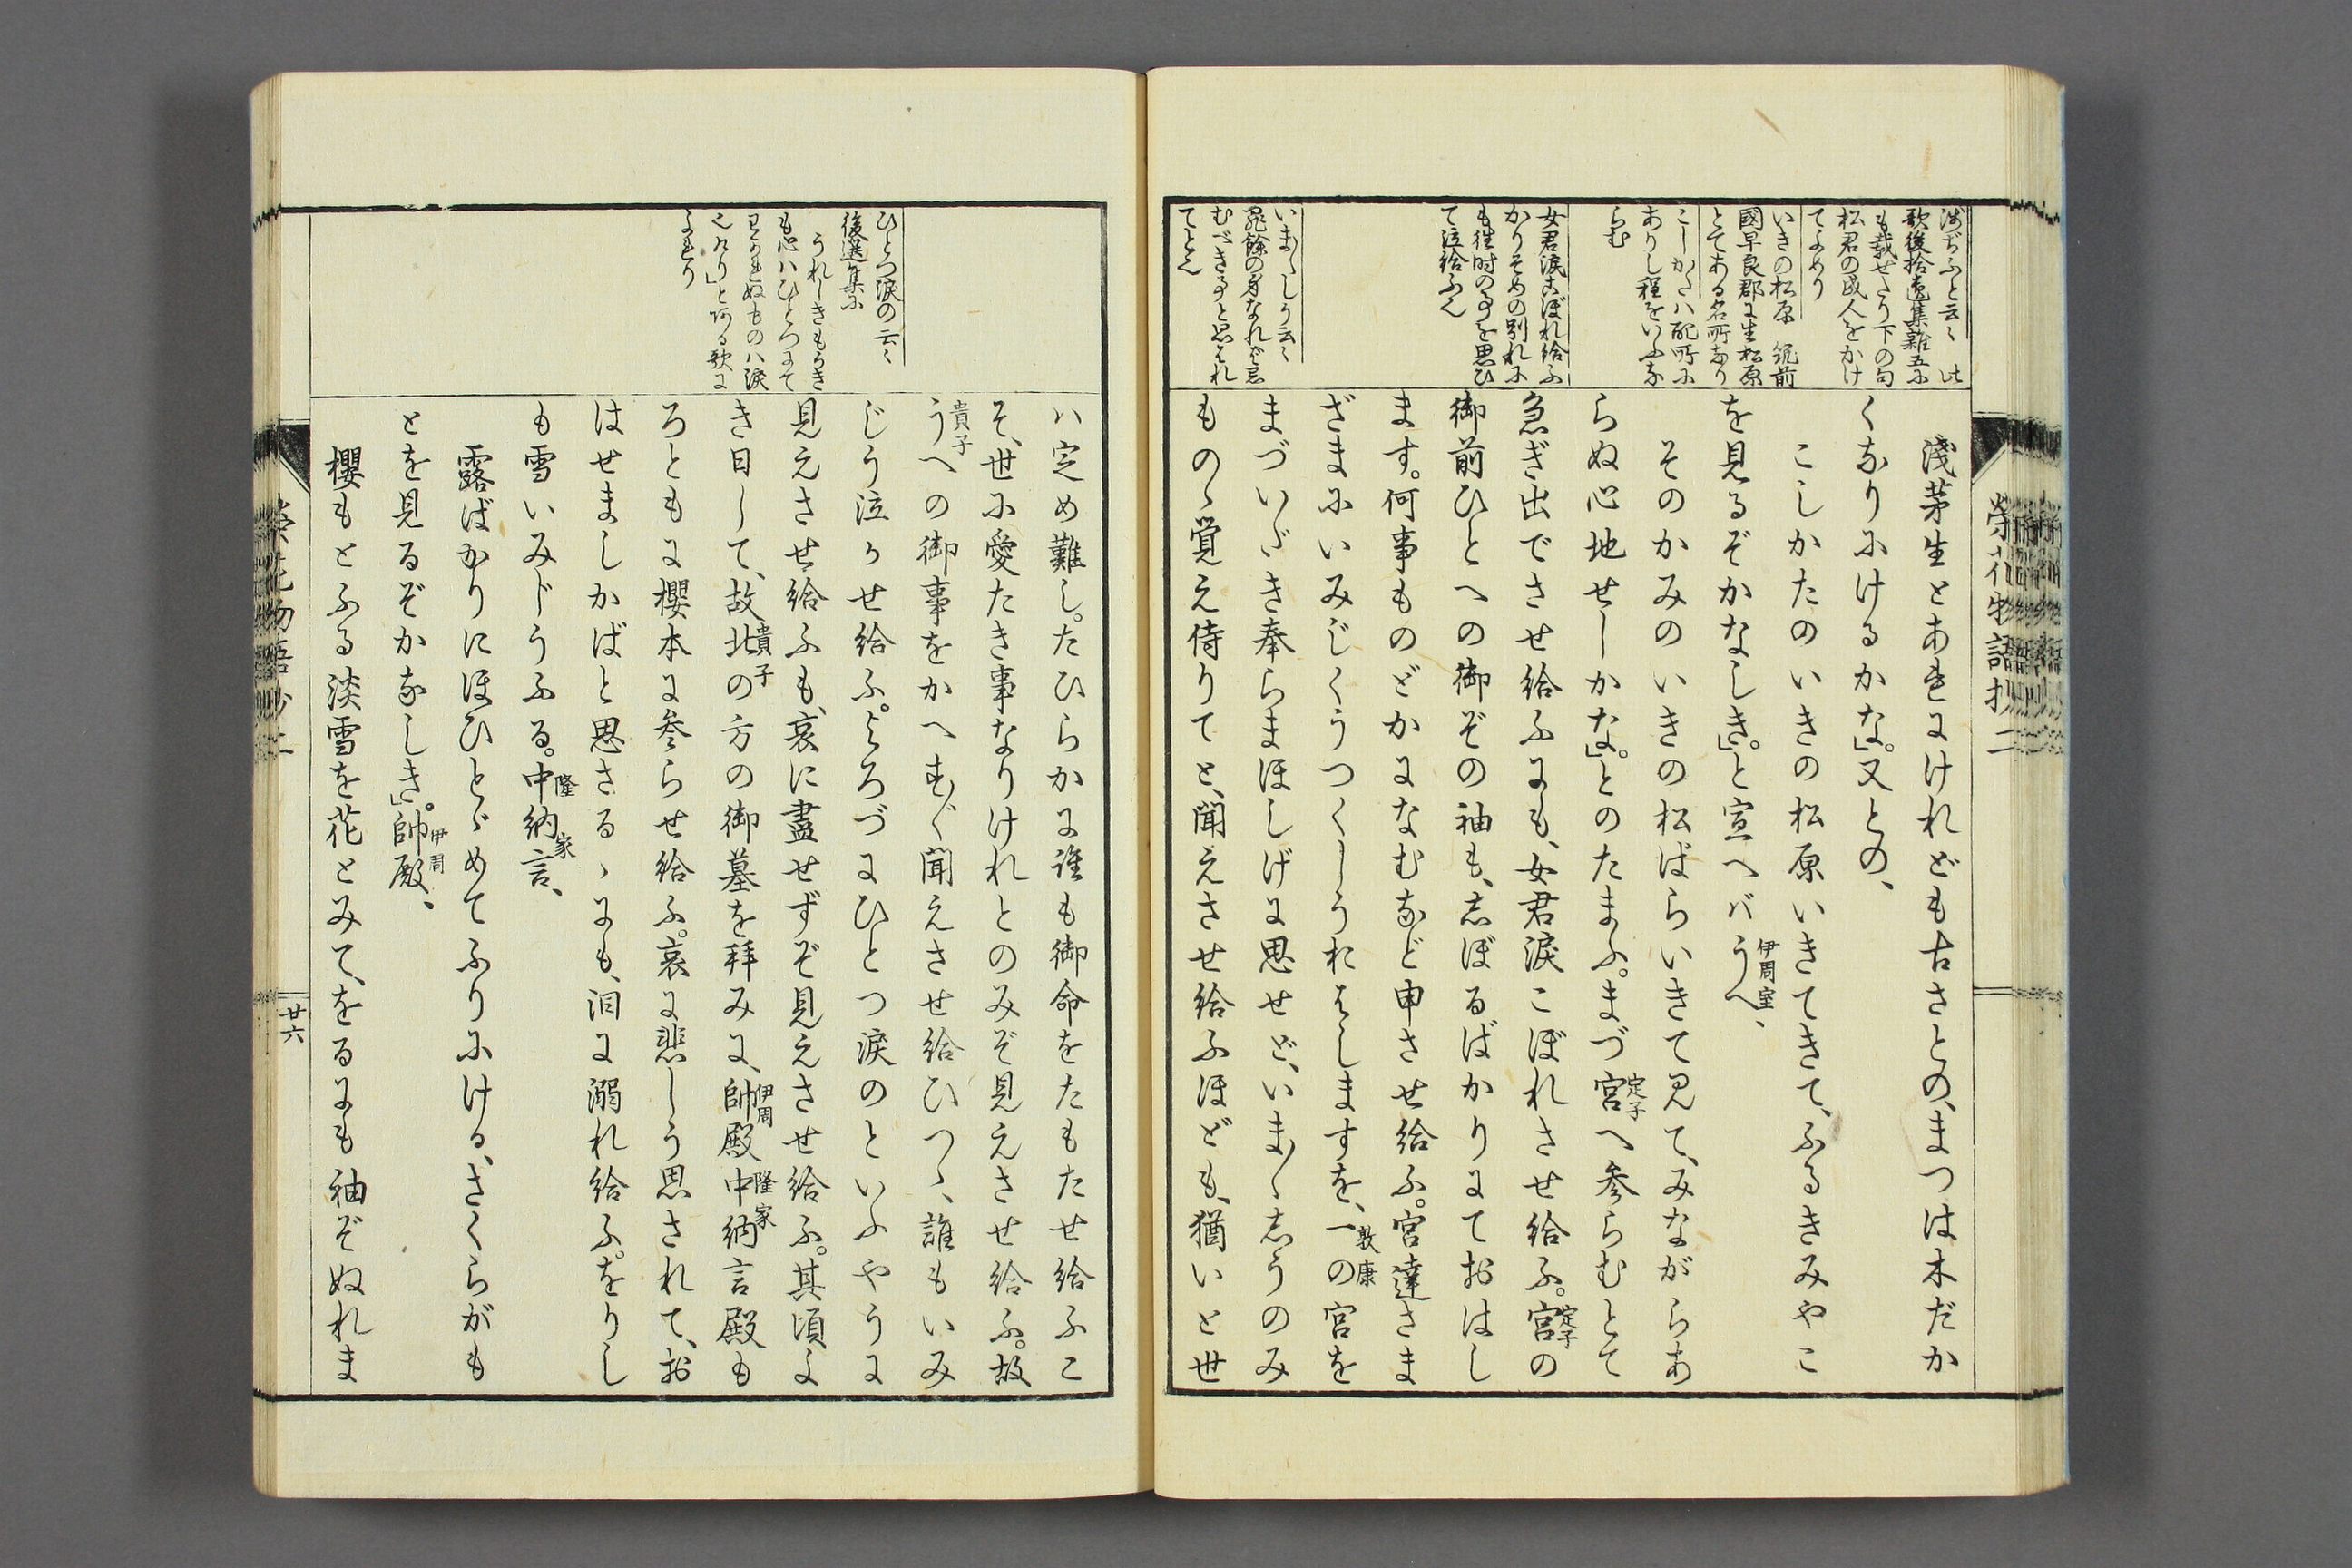 淺茅生とあれにけれども古さとの、まつは木だか
くなりにけるかな」。又との、
こしかたのいきの松原いきてきて、ふるきみやこ
を見るぞかなしき」。と宣へバうへ、
伊周室
そのかみのいきの松ばらいきて見て、みながらあ
らぬ心地せしかな」。とのたまふ。まづ宮へ参らむとて
定子
急ぎ出でさせ給ふにも、女君涙こぼれさせ給ふ。宮の
定子
御前ひとへの御ぞの袖も、志ぼるばかりにておはし
ます。何事ものどかになむなど申させ給ふ。宮達さま
ざまにいみじくうつくしうおはしますを、一の宮を
敦康
まづいだき奉らまほしげに思せど、いま〱志うのみ
ものゝ覚え侍りてと、聞えさせ給ふほども、猶いと世
淺ぢふと云〻 此
歌後拾遺集雜五に
も載せたり下の句
松君の成人をかけ
てよめり
いきの松原 筑前
國早良郡に生松原
とてある名所なり
こしかたハ配所に
ありし程をいふな
らむ
女君涙こぼれ給ふ
かりそめの別れに
も往時の事を思ひ
て泣給ふ也
いま〱しう云〻
罪餘の身なれバ忌
むべき事と思はれ
てと也
榮花物語抄二
ハ定め難し。たひらかに誰も御命をたもたせ給ふこ
そ、世に愛たき事なりけれとのみぞ見えさせ給ふ。故
うへの御事をかへす〲聞えさせ給ひつゝ、誰もいみ
貴子
じう泣かせ給ふ。よろづにひとつ涙のといふやうに
見えさせ給ふも、哀に盡せずぞ見えさせ給ふ。其頃よ
き日して、故北の方の御墓を拜みに、帥殿中納言殿も
貴子
伊周
隆家
ろともに櫻本に参らせ給ふ。哀に悲しう思されて、お
はせましかばと思さるゝにも、泪に溺れ給ふ。をりし
も雪いみじうふる。中納言、
隆家
露ばかりにほひとゞめてふりにける、さくらがも
とを見るぞかなしき」。帥殿、
伊周
櫻もとふる淡雪を花とみて、をるにも袖ぞぬれま
ひとつ涙の云〻
後選集に
うれしきもうき
も心ハひとつにて
わかれぬものハ涙
也けり」とある歌に
よれり
廿六